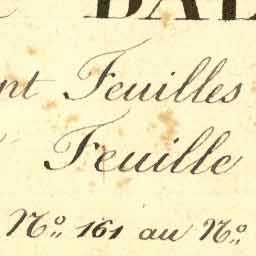 BAL
nt Feuilles
Feuille
Nº 161 au Nº